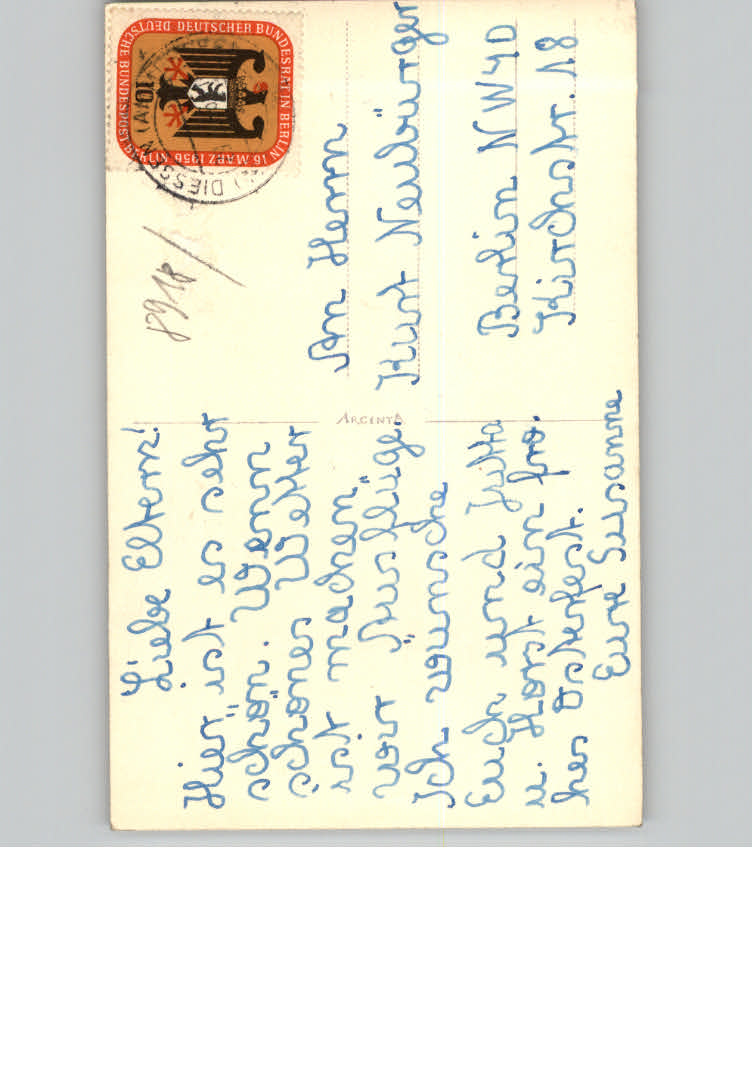 Liebe Eltern!
Hier ist es sehr
schön. Wenn
schönes Wetter
ist machen
wir Ausflüge.
Ich wünsche
Euch und Jutta
u. Horst ein fro-
hes Osterfest.
Eure Susanne
ARGENTA
An Herrn
Kurt Neubürger
Berlin NW40
Kirchstr. 18
8918/
DEUTSCHER BUNDESRAT IN BERLIN 16. MÄRZ 1956
DEUTSCHE BUNDESPOST BERLIN
10
DIESSEN